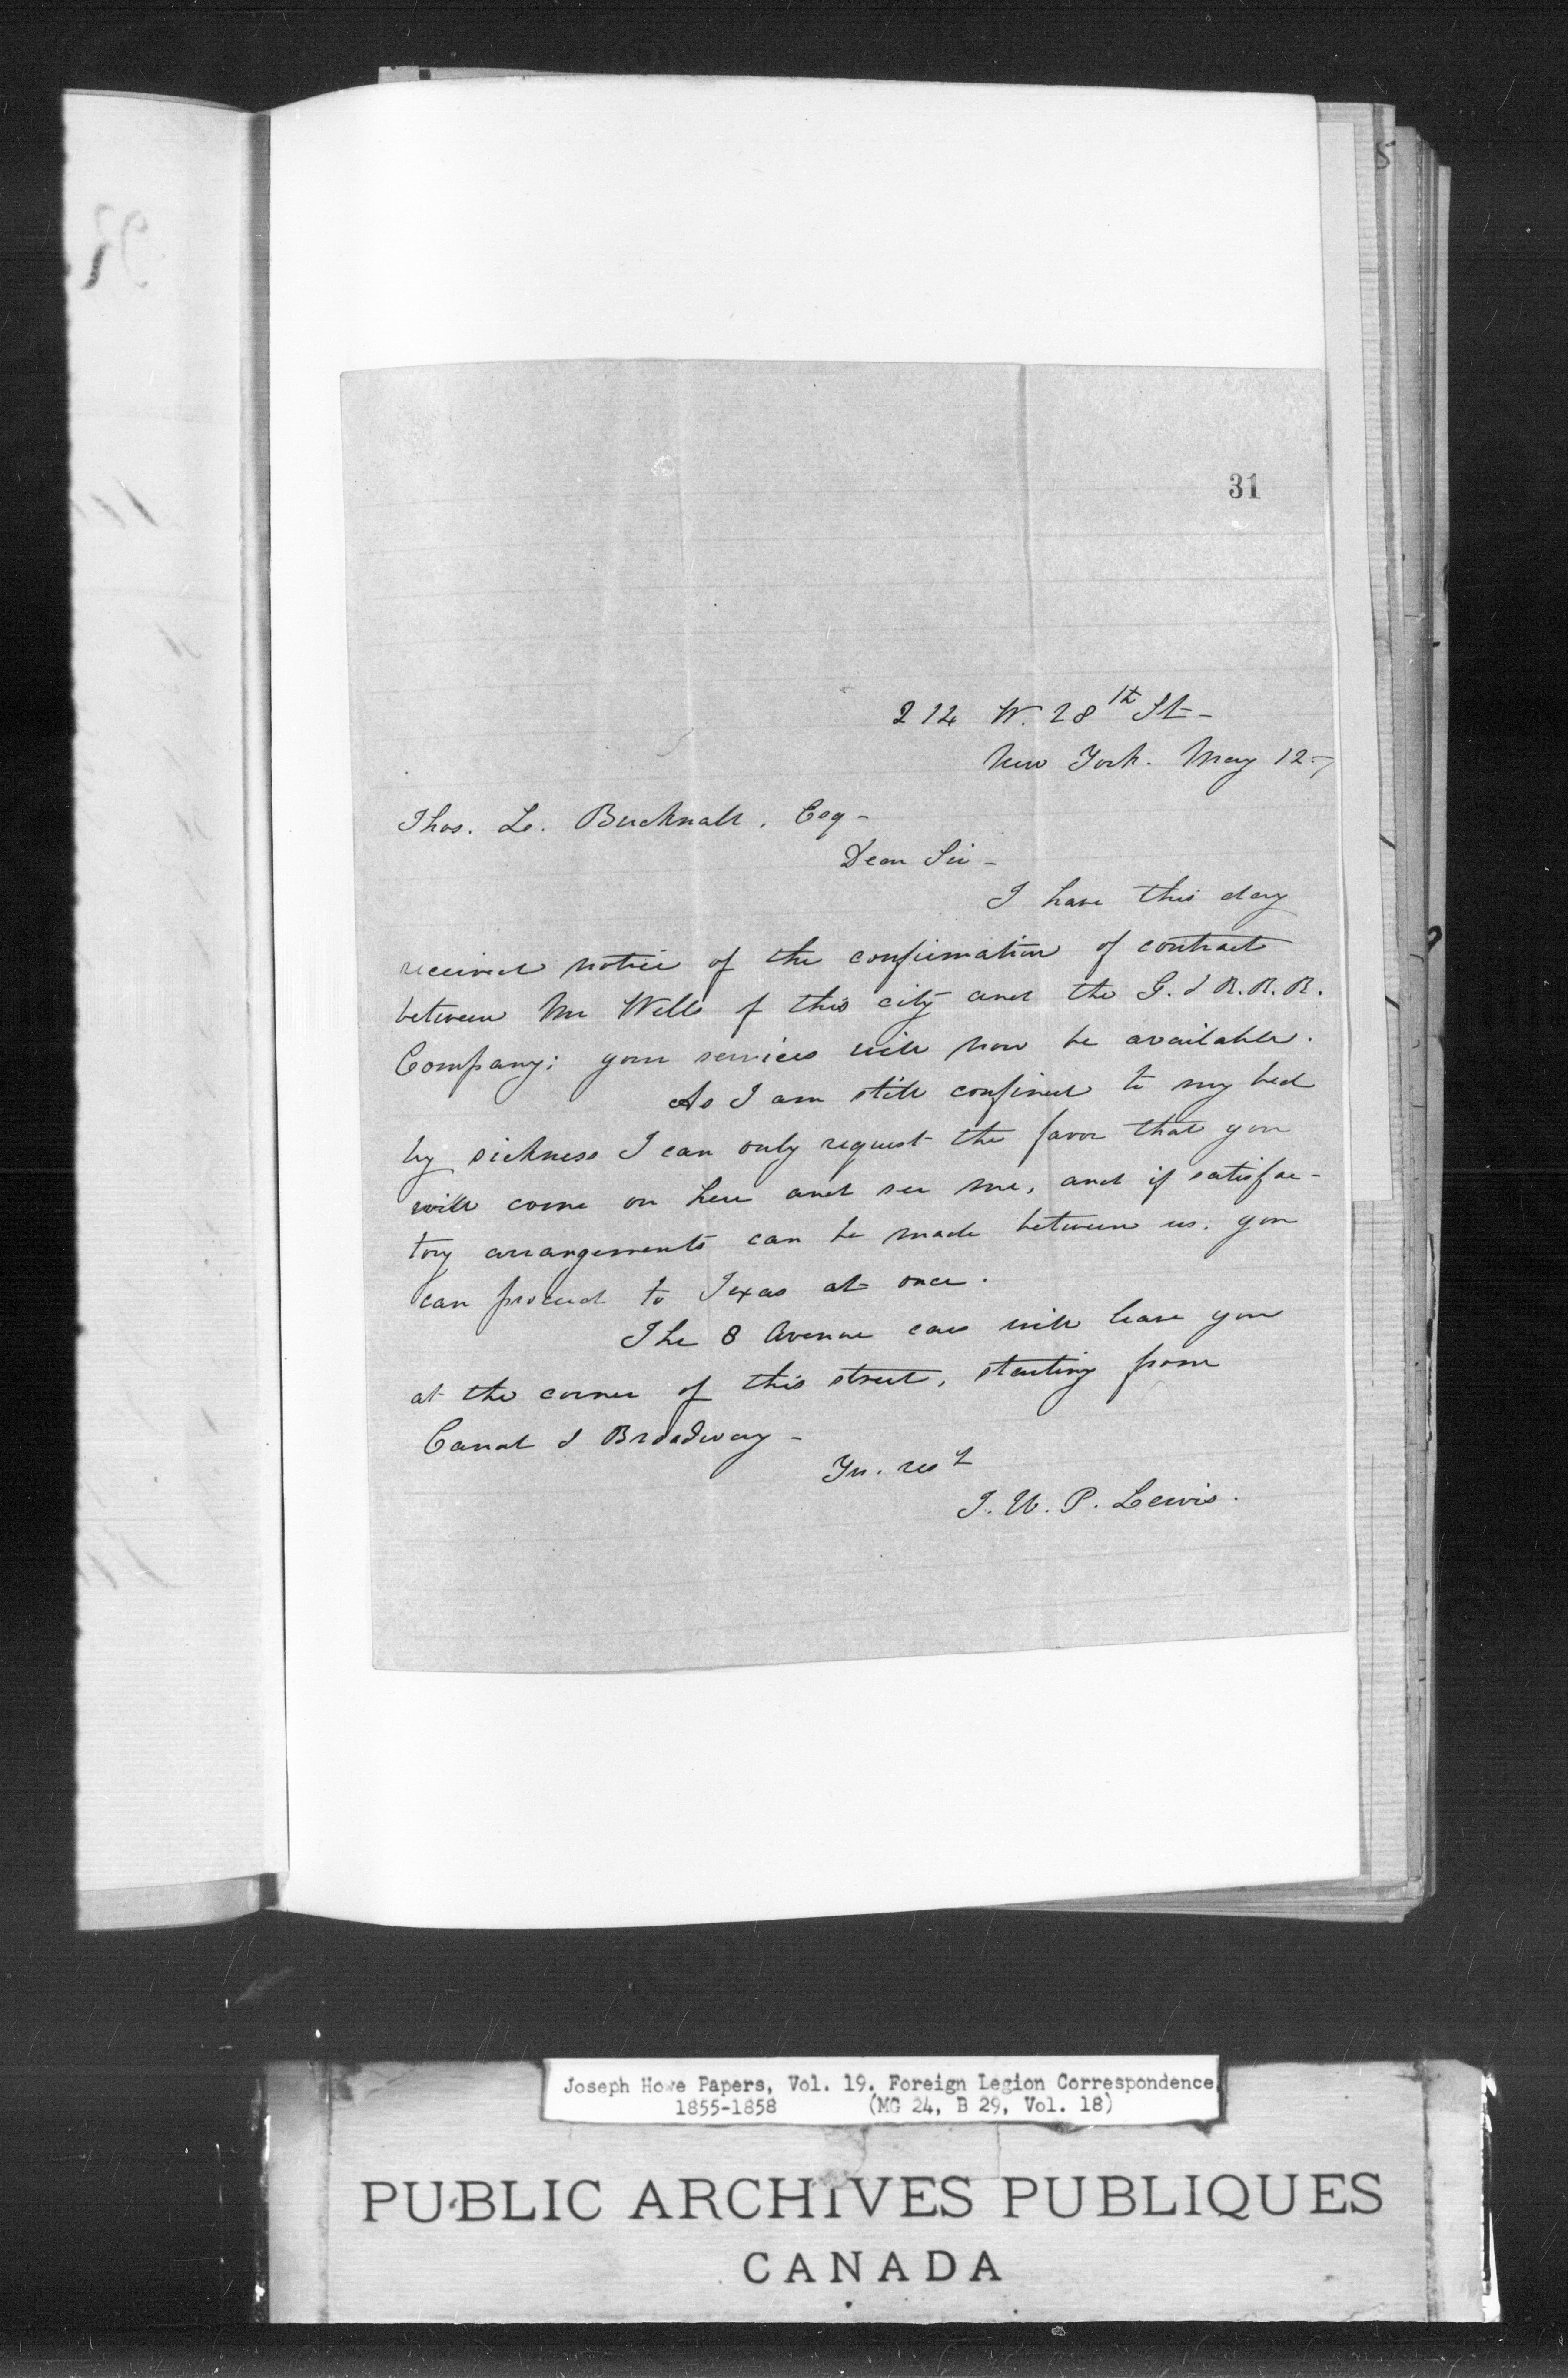 31
214 W. 28th St-
New York. May 12-
Thos. L. Bucknall, Esq-
Dear Sir-
I have this day
received notice of the confirmation of contract
between Mr Wells of this city and the G. & R.R.R.
Company; your services will now be available.
As I am still confined to my bed
by sickness I can only request the favor that you
will come on here and see me, and if satisfac-
tory arrangements can be made between us, you
can proceed to Texas at once.
The 8 Avenue cars will leave you
at the corner of this street, starting from
Canal & Broadway-
Yr. rest
I. W. P. Lewis.
Joseph Howe Papers, Vol. 19. Foreign Legion Correspondence
1855-1858 (MG 24, B 29, Vol. 18)
PUBLIC ARCHIVES PUBLIQUES
CANADA